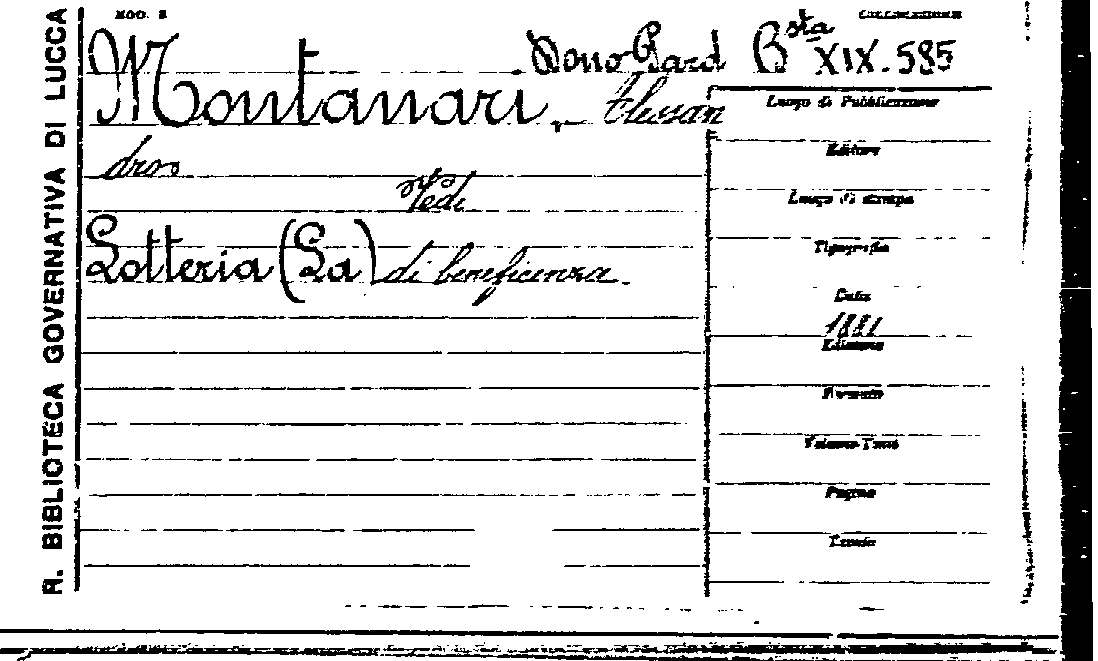 R. BIBLIOTECA GOVERNATIVA DI LUCCA
MOD. 2
COLLOCAZIONE
Dono Gard Bsta XIX.585
Montanari, Alessan
dro
Vedi
Lotteria (La) di beneficenza.
Luogo di Pubblicazione
Editore
Luogo di stampa
Tipografia
Data
1881
Edizione
Formato
Volume Tomi
Pagine